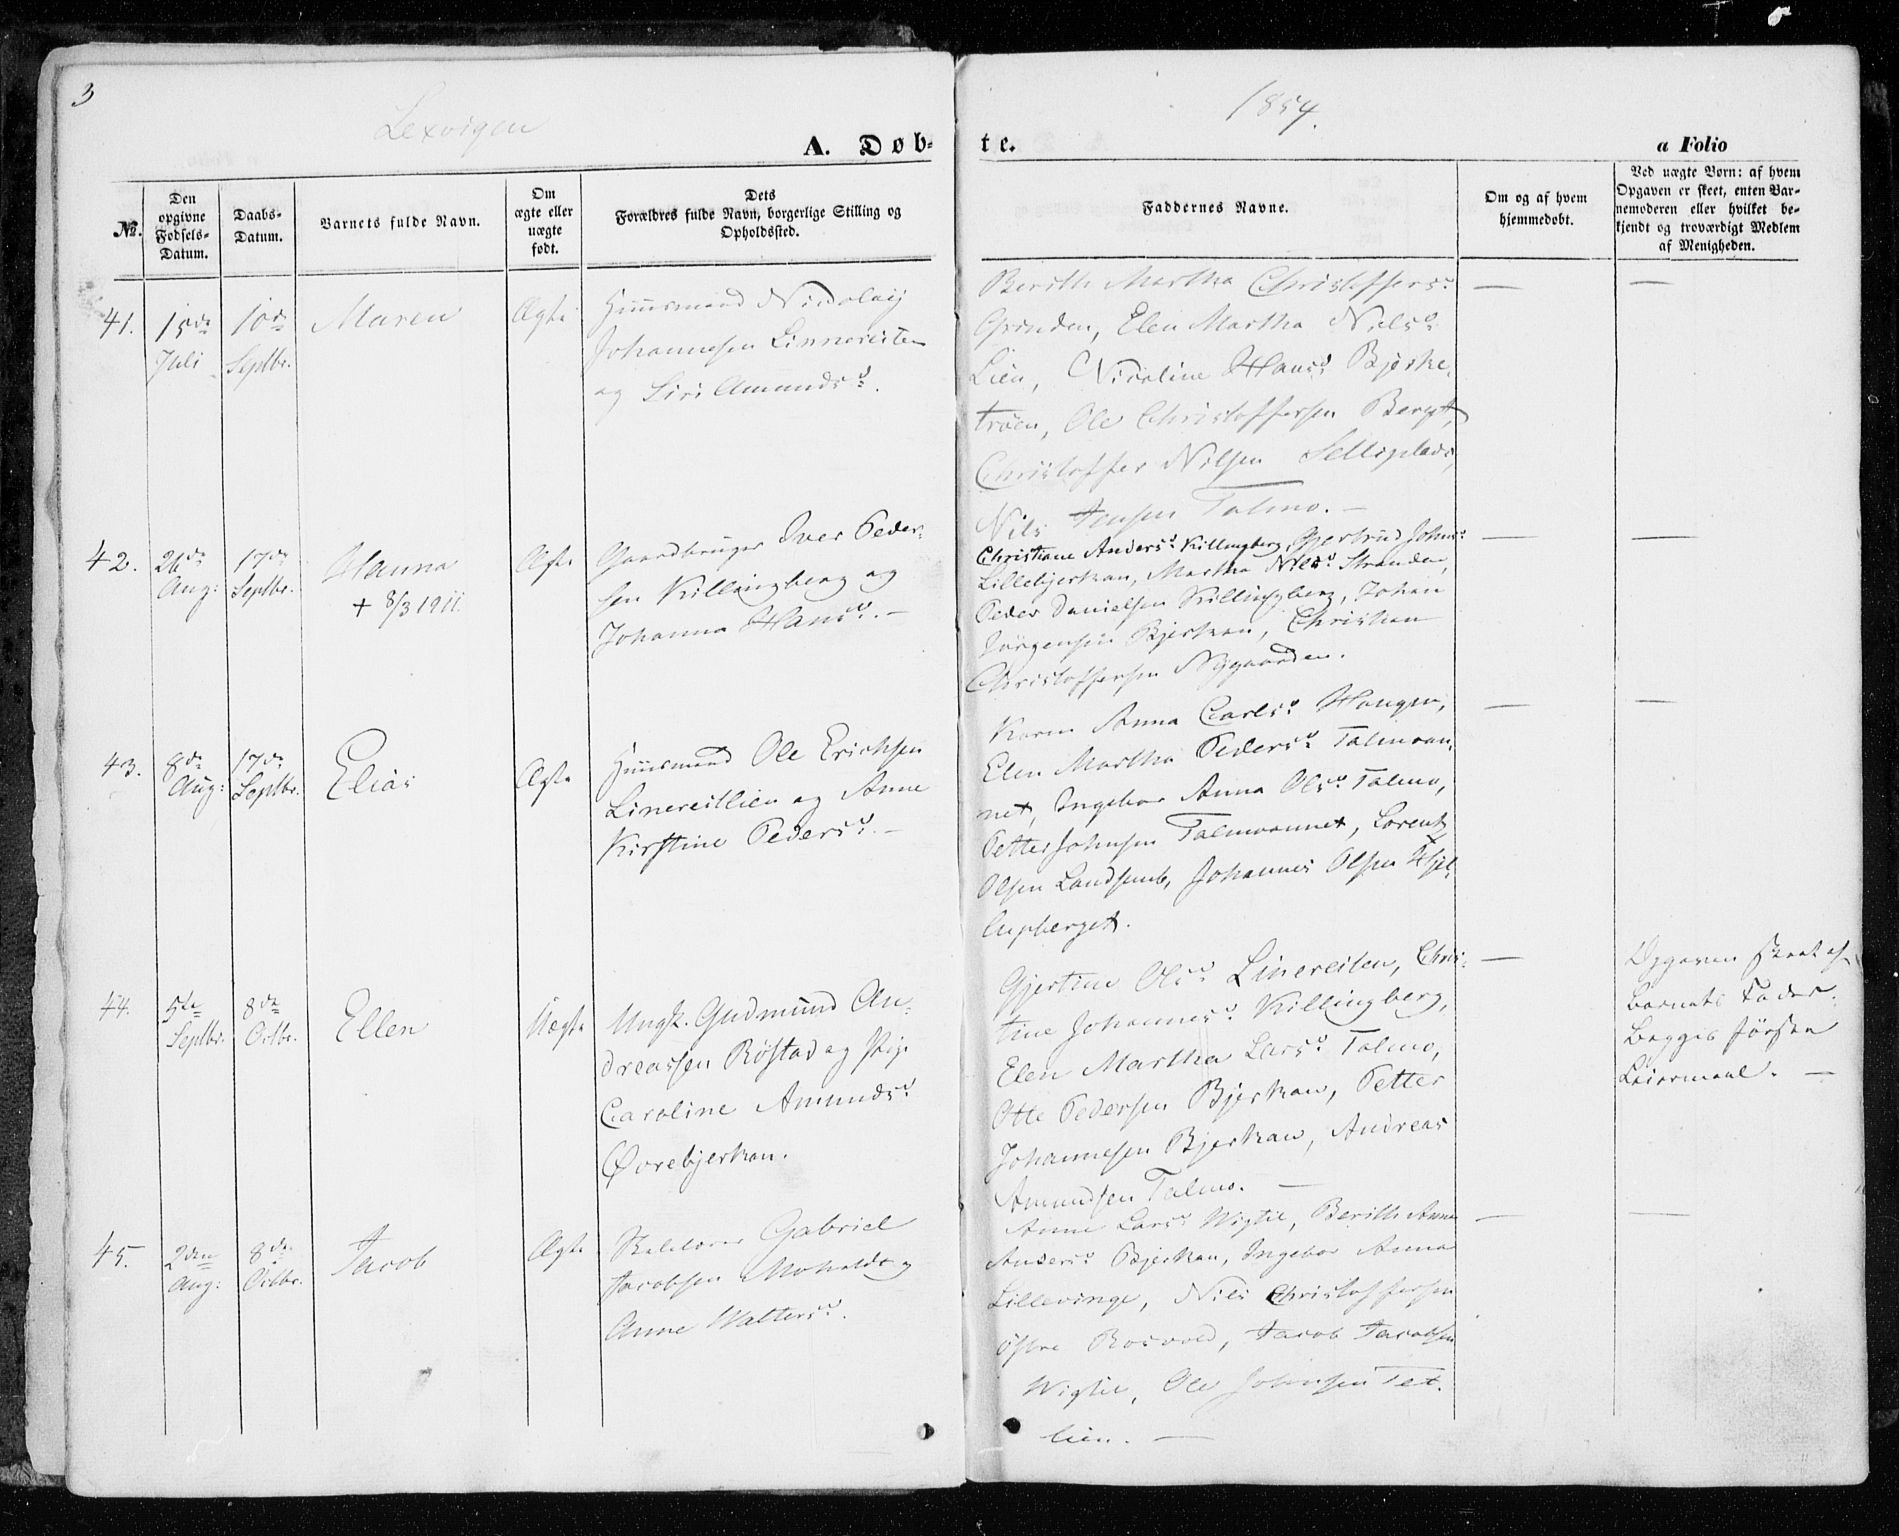 3
Lexvigen
1854.
A. Døb-
te.
a Folio
No.
Den
opgivne
Fødsels-
Datum.
Daabs-
Datum.
Barnets fulde Navn.
Om
ægte eller
uægte
født.
Dets
Forældres fulde Navn, borgerlige Stilling og
Opholdssted.
Faddernes Navne.
Om og af hvem
hjemmedøbt.
Ved uægte Børn: af hvem
Opgaven er skeet, enten Bar-
nemoderen eller hvilket be-
kjendt og troværdigt Medlem
af Menigheden.
41.
15de
Juli
10de
Septbr.
Maren
Ægte
Huusmand Nicolaij
Johannesen Linnereiten
og Siri Amundsd.
Berith Martha Christoffersd.
Grinden, Elen Martha Nilsd.
Lien, Nicoline Hansd. Bjerke-
trøen, Ole Christoffersen Berget,
Christoffer Nilsen Selliplads,
Nils Jensen Talmo. —
—
—
42.
26de
Aug:
17de
Septbr.
Hanna
+ 8/3 1911.
Ægte
Gaardbruger Iver Peder-
sen Killingberg og
Johanna Hansd. —
Christiane Andersd. Killingberg, Gjertrud Johnsd.
Lillebjerkan, Martha Nilsd. Stranden,
Peder Danielsen Killingberg, Johan
Jørgensen Bjerkan, Christian
Christoffersen Nygaarden.
—
—
43.
8de
Aug:
17de
Septbr.
Elias
Ægte
Huusmand Ole Erichsen
Linereitlien og Anne
Kirstine Pedersd. —
Karen Anna Carlsd. Haugen,
Elen Martha Pedersd. Talmoan-
net, Ingebor Anna Olsd. Talmo,
Petter Johnsen Talmoannet, Lorents
Olsen Landsemb, Johannes Olsen Hjel-
lupberget.
—
—
44.
5te
Septbr.
8de
Octbr.
Ellen
Uægte
Ungk. Gudmund An-
dreassen Røstad og Pige
Caroline Amundsd.
Øvrebjerkan.
Gjertine Olsd. Linereiten, Chris-
tine Johannesd. Killingberg,
Elen Martha Larsd. Talmo,
Otte Pedersen Bjerkan, Petter
Johannesen Bjerkan, Andreas
Amundsen Talmo. —
—
Opgaven skeet af
Barnets Fader.
Begges første
Leiermaal. —
45.
2den
Aug:
8de
Octbr.
Jacob
Ægte
Gabriel
Jacobsen Moholdt og
Anne Waltersd.
Anne Larsd. Wigtil, Berith Anna
Andersd. Bjerkan, Ingebor Anna
Lillevinge, Nils Christoffersen
Østre Rosvold, Jacob Jacobsen
Wigtil, Ole Johnsen Tet-
lien. —
—
—